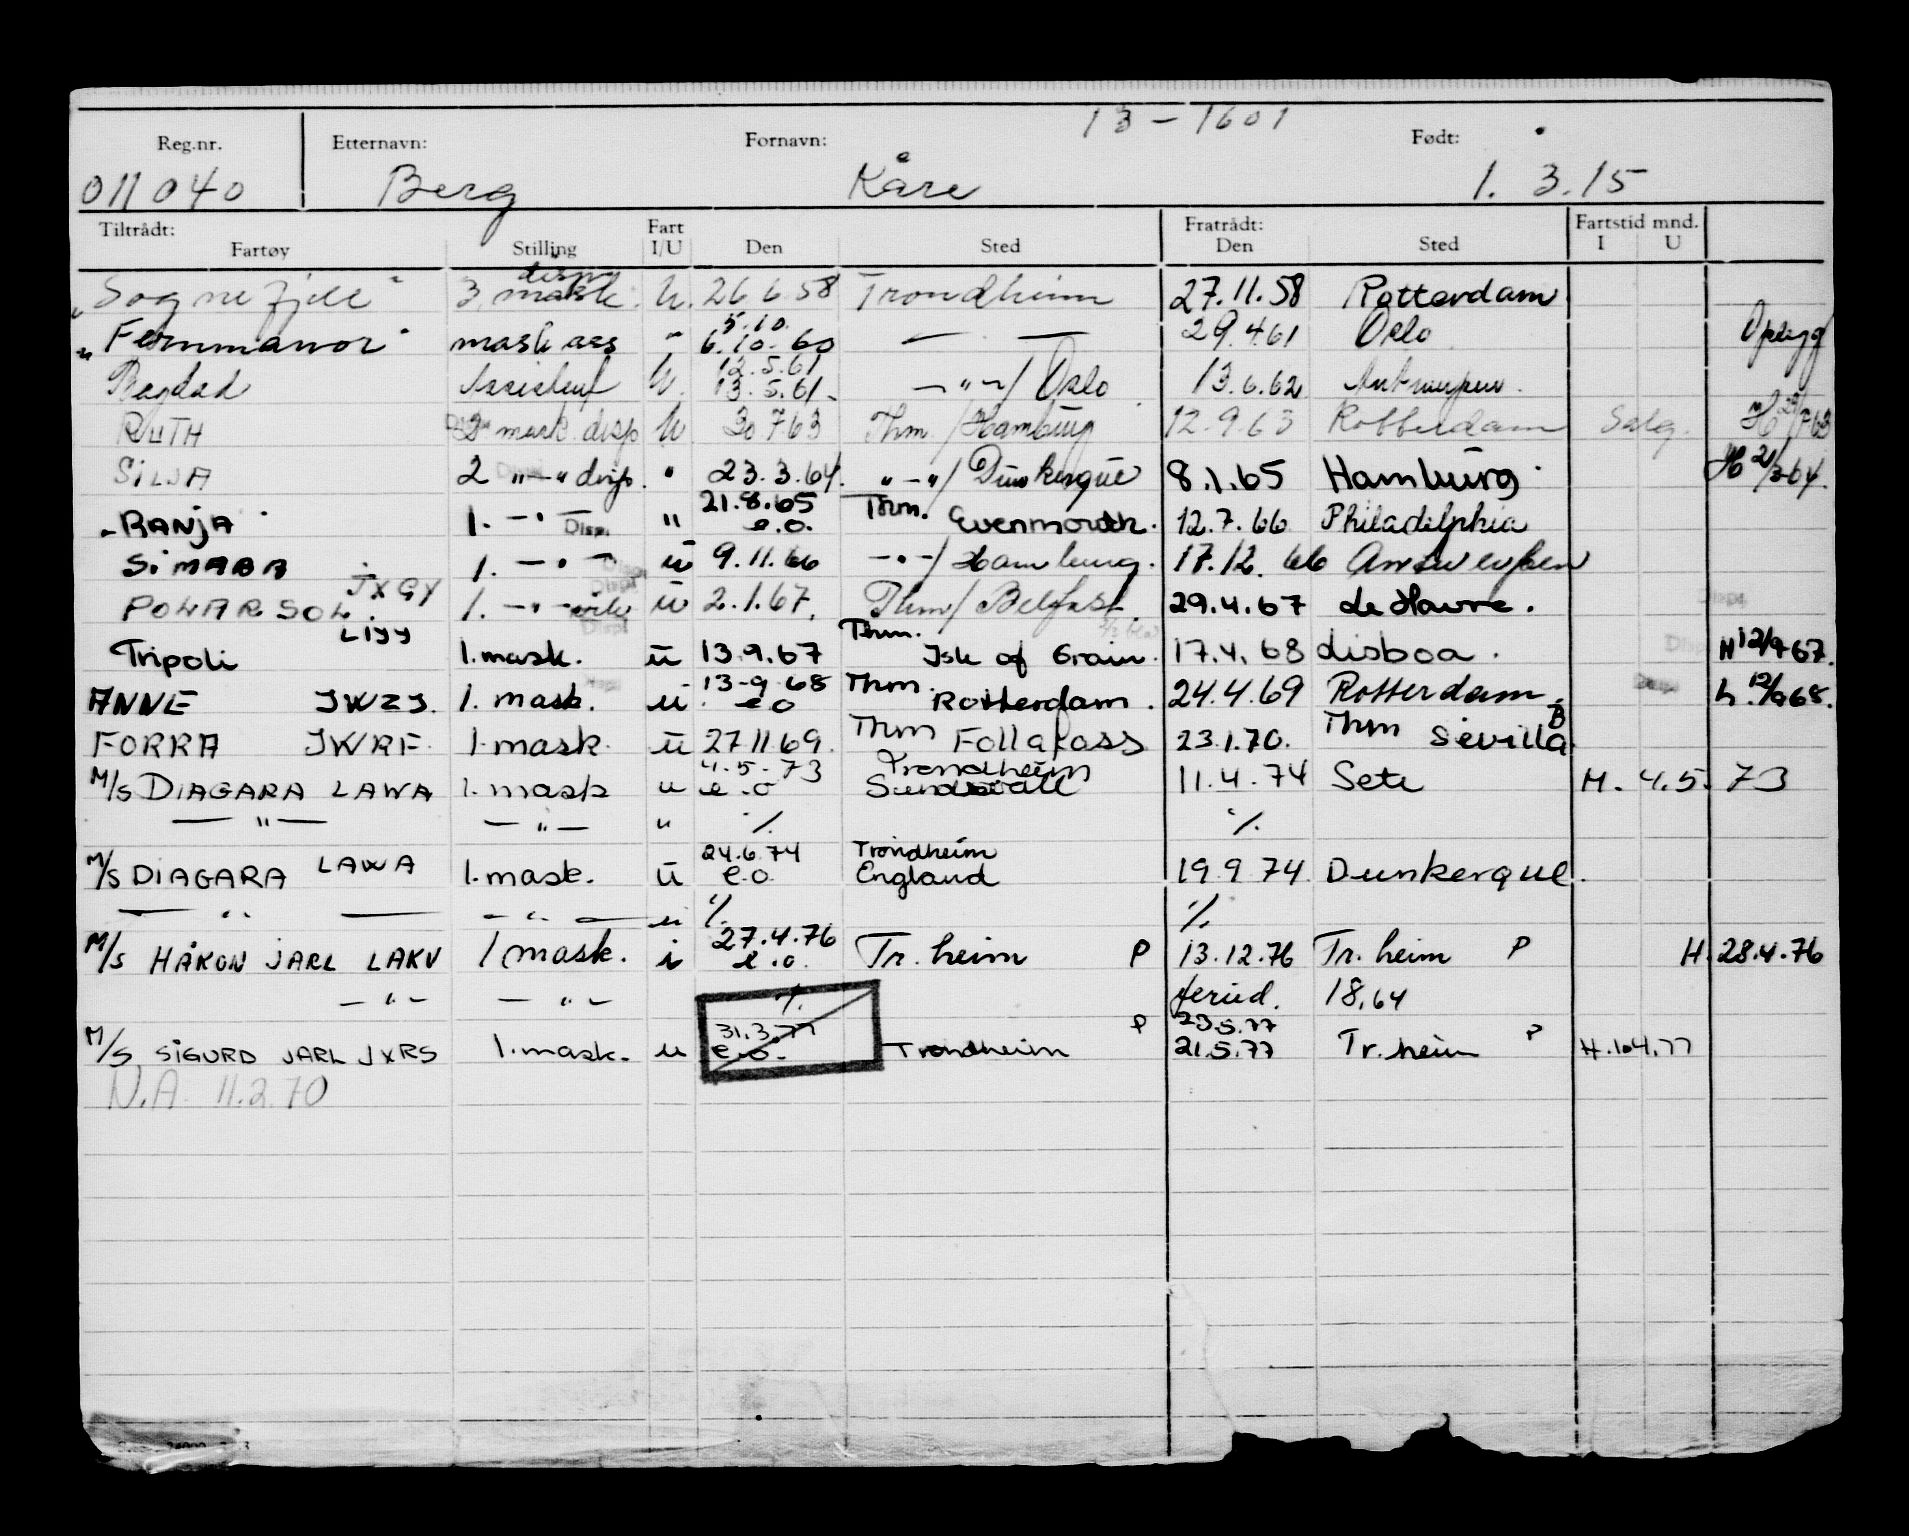 13-1601
Reg.nr. Etternavn: Fornavn: Født:
011040 Berg Kåre 1. 3.15
Tiltrådt: Fart Fratrådt: Fartstid mnd.
Fartøy Stilling I/U Den Sted Den Sted I U
disp
"Sognefjell" 3. mask. U. 26.6.58 Trondheim 27.11.58 Rotterdam
5.10.
"Fernmanor" mask ass " 6.10.60 — — 29.4.61 Oslo Opplegg
12.5.61
Bagdad Assistent U. 13.5.61. —"—/ Oslo 13.6.62 Antwerpen.
RUTH 2 mask. disp U 30 7 63 Thm/Hamburg 12.9.63 Rotterdam Salg.
SILJA 2 "—" disp. " 23.3.64. "—"/ Dunkerque 8.1.65 Hamburg. H 21/3-64.
21.8.65 Thm.
"RANJA" 1. —"— Disp. " e.o. Evenmouth. 12.7.66 Philadelphia
SIMARA 1. —"— ū 9.11.66 —"—/Hamburg. 17.12.66 Antwerpen
JXGY
POLARSOL. 1. —"— ū 2.1.67. Thm/Belfast 29.4.67 Le Havre.
LIYY Thm.
Tripoli 1. mask. ū 13.9.67 Isle of Grain. 17.4.68 Lisboa. H 12/9-67.
13-9 68 Thm.
ANNE JWZJ. 1. mask. ū. e o Rotterdam. 24.4.69 Rotterdam. h. 12/9 68.
Thm Thm B
FORRA JWRF. 1. mask. ū 27 11 69. Follafoss 23.1.70. Sevilla.
4.5.73 Trondheim
M/S DIAGARA LAWA 1. mask u e.o Sundsvall 11.4.74 Sete H. 4.5. 73
—"— —"— " %. %.
24.6.74 Trondheim
M/S DIAGARA LAWA 1. mask. ū e.o. England 19.9 74 Dunkerque.
—"— —"— u %. %.
27.4.76
M/S HÅKON JARL LAKV 1 mask. i e.o. Tr. heim P 13.12.76 Tr. heim P H. 28.4.76
—"— —"— %. feried. 18,64
31.3.77 P 23.5.77
M/S SIGURD JARL JXRS 1. mask. u e.o. Trondheim 21.5.77 Tr. heim P H.10.4.77
N.A. 11.2.70